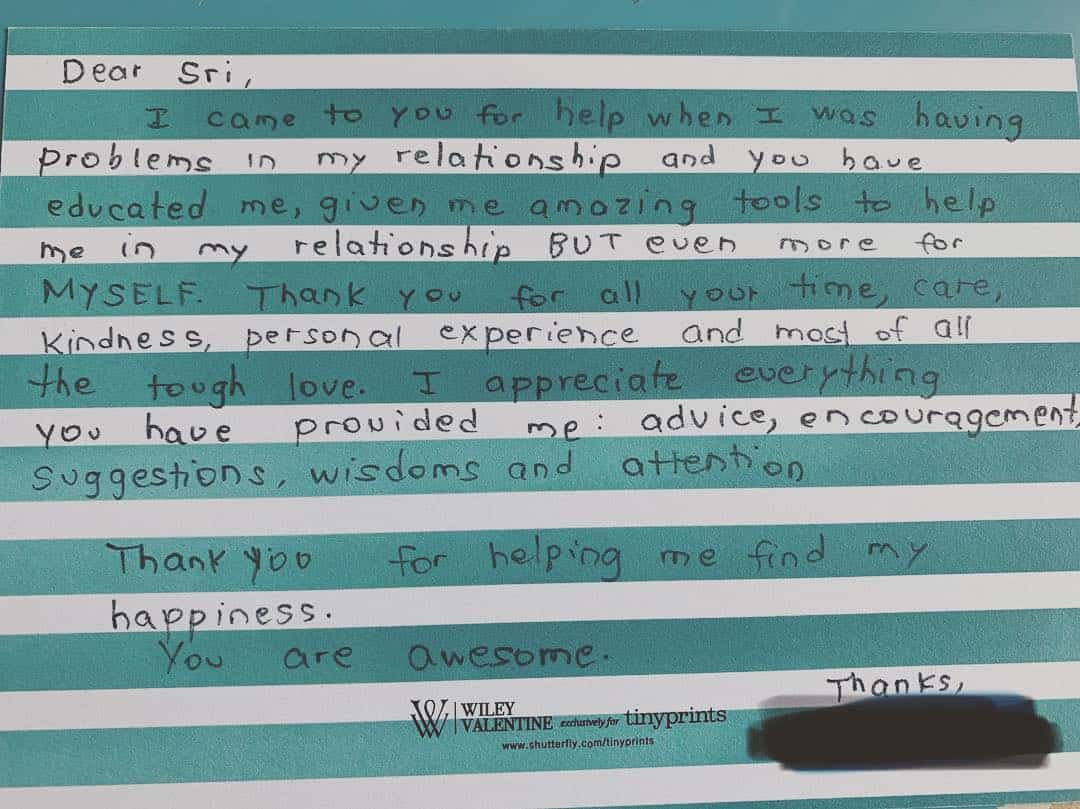 Dear Sri,
I came to you for help when I was having
problems in my relationship and you have
educated me, given me amazing tools to help
me in my relationship BUT even more for
MYSELF. Thank you for all your time, care,
kindness, personal experience and most of all
the tough love. I appreciate everything
you have provided me: advice, encouragement,
suggestions, wisdoms and attention
Thank you for helping me find my
happiness.
You are awesome.
Thanks,
W | WILEY
VALENTINE exclusively for tinyprints
www.shutterfly.com/tinyprints